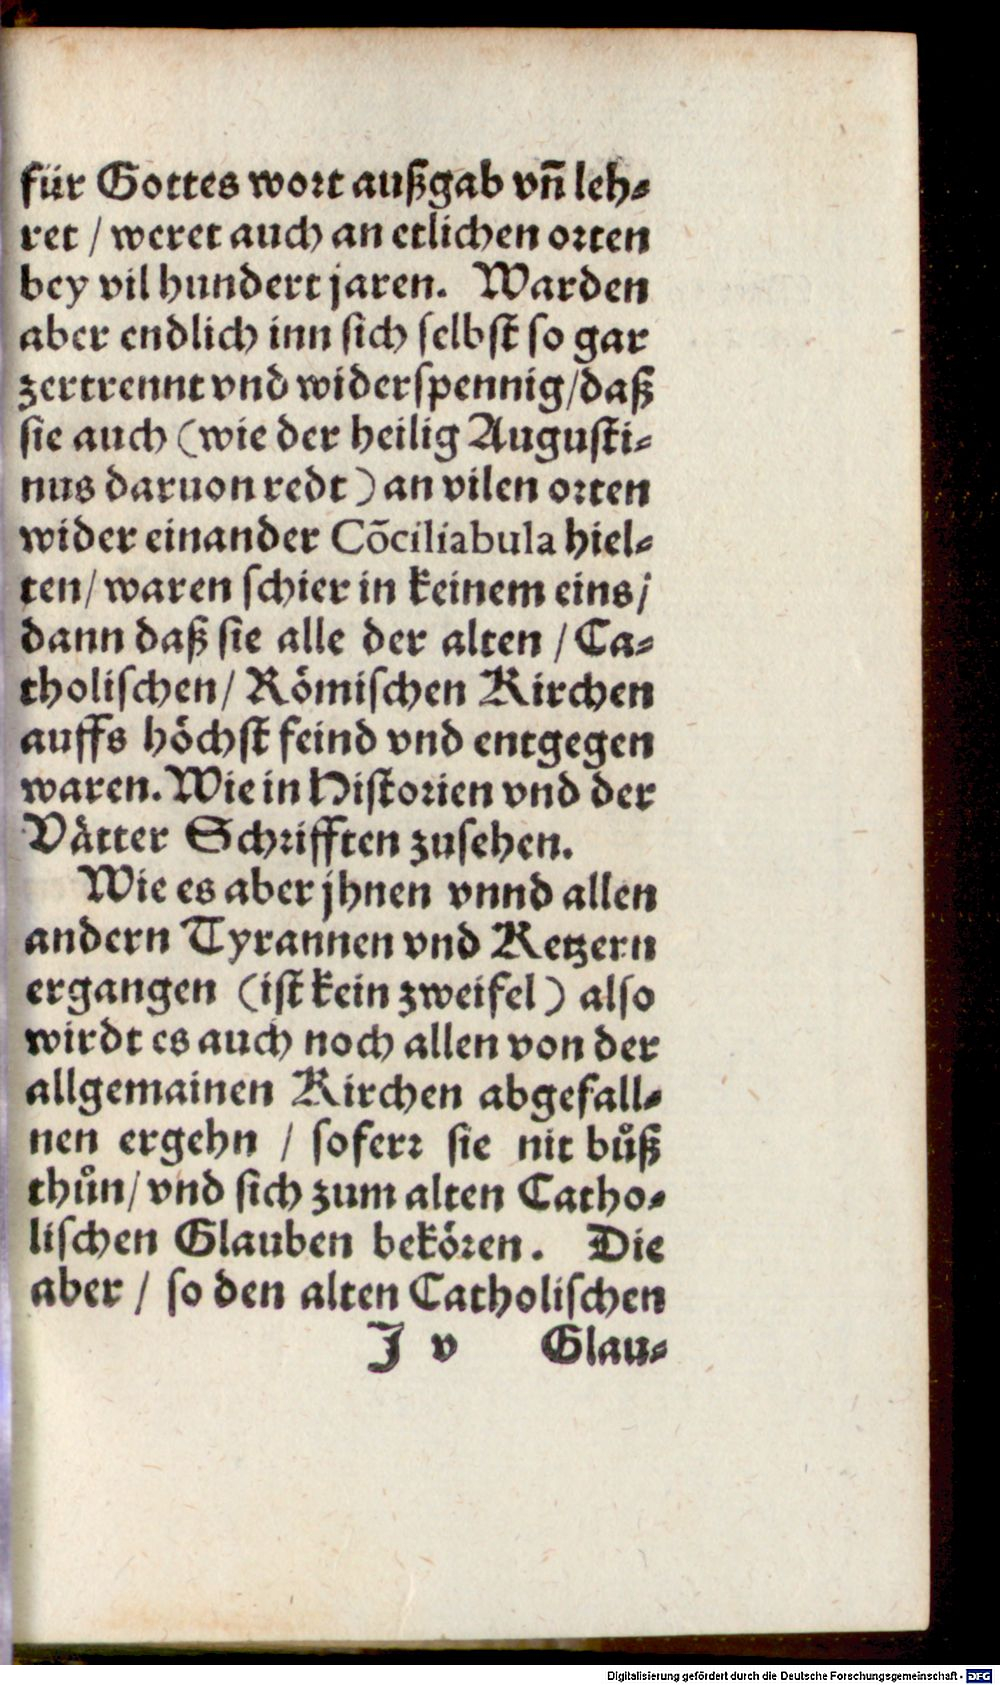 für Gottes wort außgab vñ leh⸗
ret / weret auch an etlichen orten
bey vil hundert jaren. Warden
aber endlich inn sich selbst so gar
zertrennt vnd widerspennig/daß
sie auch (wie der heilig Augusti⸗
nus daruon redt) an vilen orten
wider einander Cõciliabula hiel⸗
ten/ waren schier in keinem eins/
dann daß sie alle der alten / Ca⸗
tholischen/ Römischen Kirchen
auffs höchst feind vnd entgegen
waren. Wie in Historien vnd der
Vätter Schrifften zusehen.
Wie es aber jhnen vnnd allen
andern Tyrannen vnd Ketzern
ergangen (ist kein zweifel) also
wirdt es auch noch allen von der
allgemainen Kirchen abgefall⸗
nen ergehn / soferr sie nit bůß
thůn/ vnd sich zum alten Catho⸗
lischen Glauben bekören. Die
aber / so den alten Catholischen
J v Glau⸗
Digitalisierung gefördert durch die Deutsche Forschungsgemeinschaft - DFG